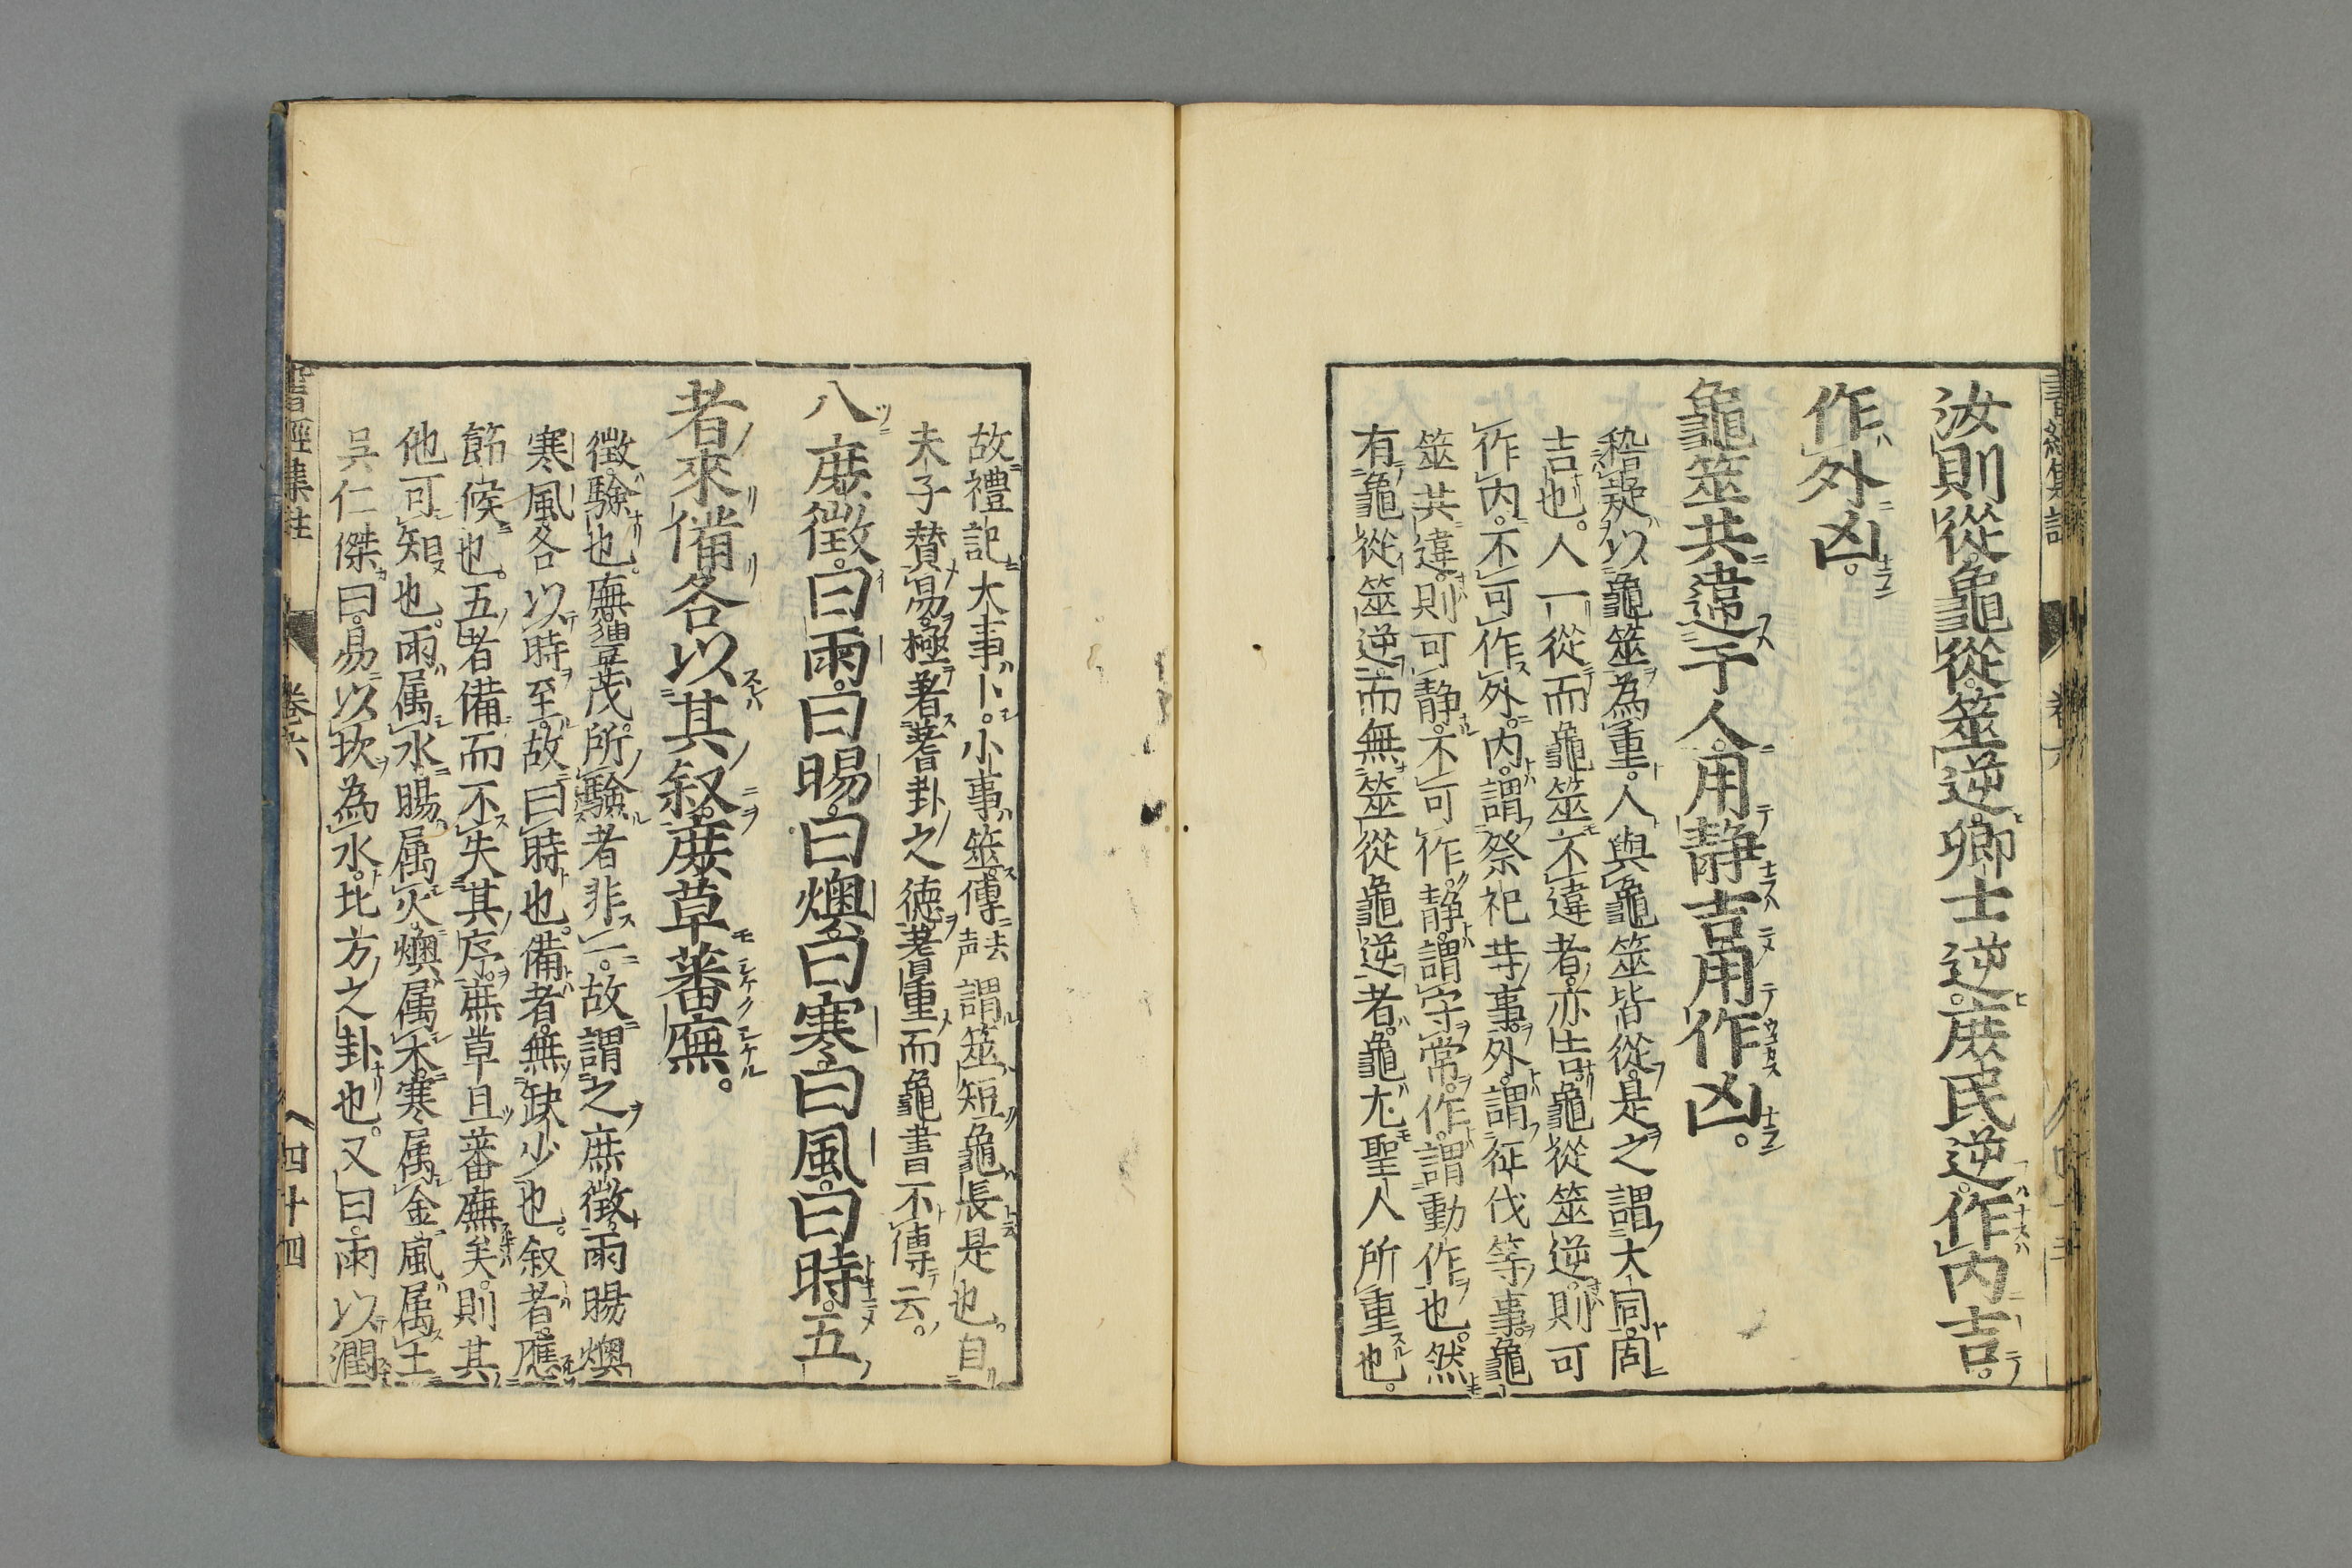 汝則從龜從筮逆卿士逆庶民逆作内吉
作外凶
龜筮共違于人用静吉用作凶
稽疑以龜筮為重人與龜筮皆從是之謂大同固
吉也人一從而龜筮不違者亦吉龜從筮逆則可
作内不可作外内謂祭祀等事外謂征伐等事龜
筮共違則可静不可作静謂守常作謂動作也然
有龜從筮逆而無筮從龜逆者龜尤聖人所重也
故禮記大事卜小事筮傳去声謂筮短龜長是也自
夫子賛易極著蓍卦之徳蓍重而龜書不傳云
八庶徴曰雨曰暘曰燠曰寒曰風曰時五
者來備各以其叙庶草蕃廡
徴驗也廡豐茂所驗者非一故謂之庶徴雨暘燠
寒風各以時至故曰時也備者無缺少也叙者應
節候也五者備而不失其序庶草且蕃廡矣則其
他可知也雨属水暘属火燠属木寒属金風属土
呉仁傑曰易以坎為水北方之卦也又曰雨以潤
書經集註 卷六 四十四